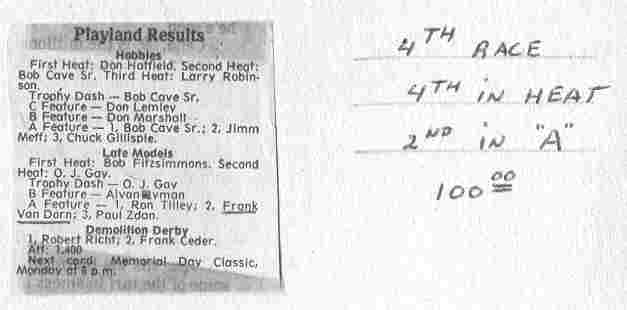 Playland Results
Hobbies
First Heat: Don Hatfield. Second Heat:
Bob Cave Sr. Third Heat: Larry Robin-
son.
Trophy Dash — Bob Cave Sr.
C Feature — Don Lemley
B Feature — Don Marshall
A Feature — 1, Bob Cave Sr.; 2, Jimm
Neff; 3, Chuck Gillispie.
Late Models
First Heat: Bob Fitzsimmons. Second
Heat: O. J. Gay.
Trophy Dash — O. J. Gay
B Feature — Alvan
A Feature — 1, Ron Tilley; 2, Frank
Van Dorn; 3, Paul Zdan.
Demolition Derby
1, Robert Richt; 2, Frank Ceder.
Att: 1,400
Next card: Memorial Day Classic,
Monday at 8 p.m.
4TH RACE
4TH IN HEAT
2ND IN "A"
100 00